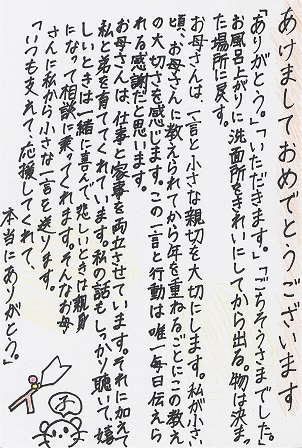 あけましておめでとうございます
「ありがとう。」「いただきます。」「ごちそうさまでした。」
お風呂上がりに洗面所をきれいにしてから出る。物は決まっ
た場所に戻す。
お母さんは、一言と小さな親切を大切にします。私が小さい
頃、お母さんに教えられてから年を重ねるごとにこの教え
の大切さを感じます。この一言と行動は唯一毎日伝えら
れる感謝だと思います。
お母さんは、仕事と家事を両立させています。それに加えて
私と弟を育ててくれています。私の話もしっかり聴いて、嬉
しいときは一緒に喜んで、悲しいときは親身
になって相談に乗ってくれます。そんなお母
さんに私から小さな一言を送ります。
「いつも支えて、応援してくれて、
本当にありがとう。」
子